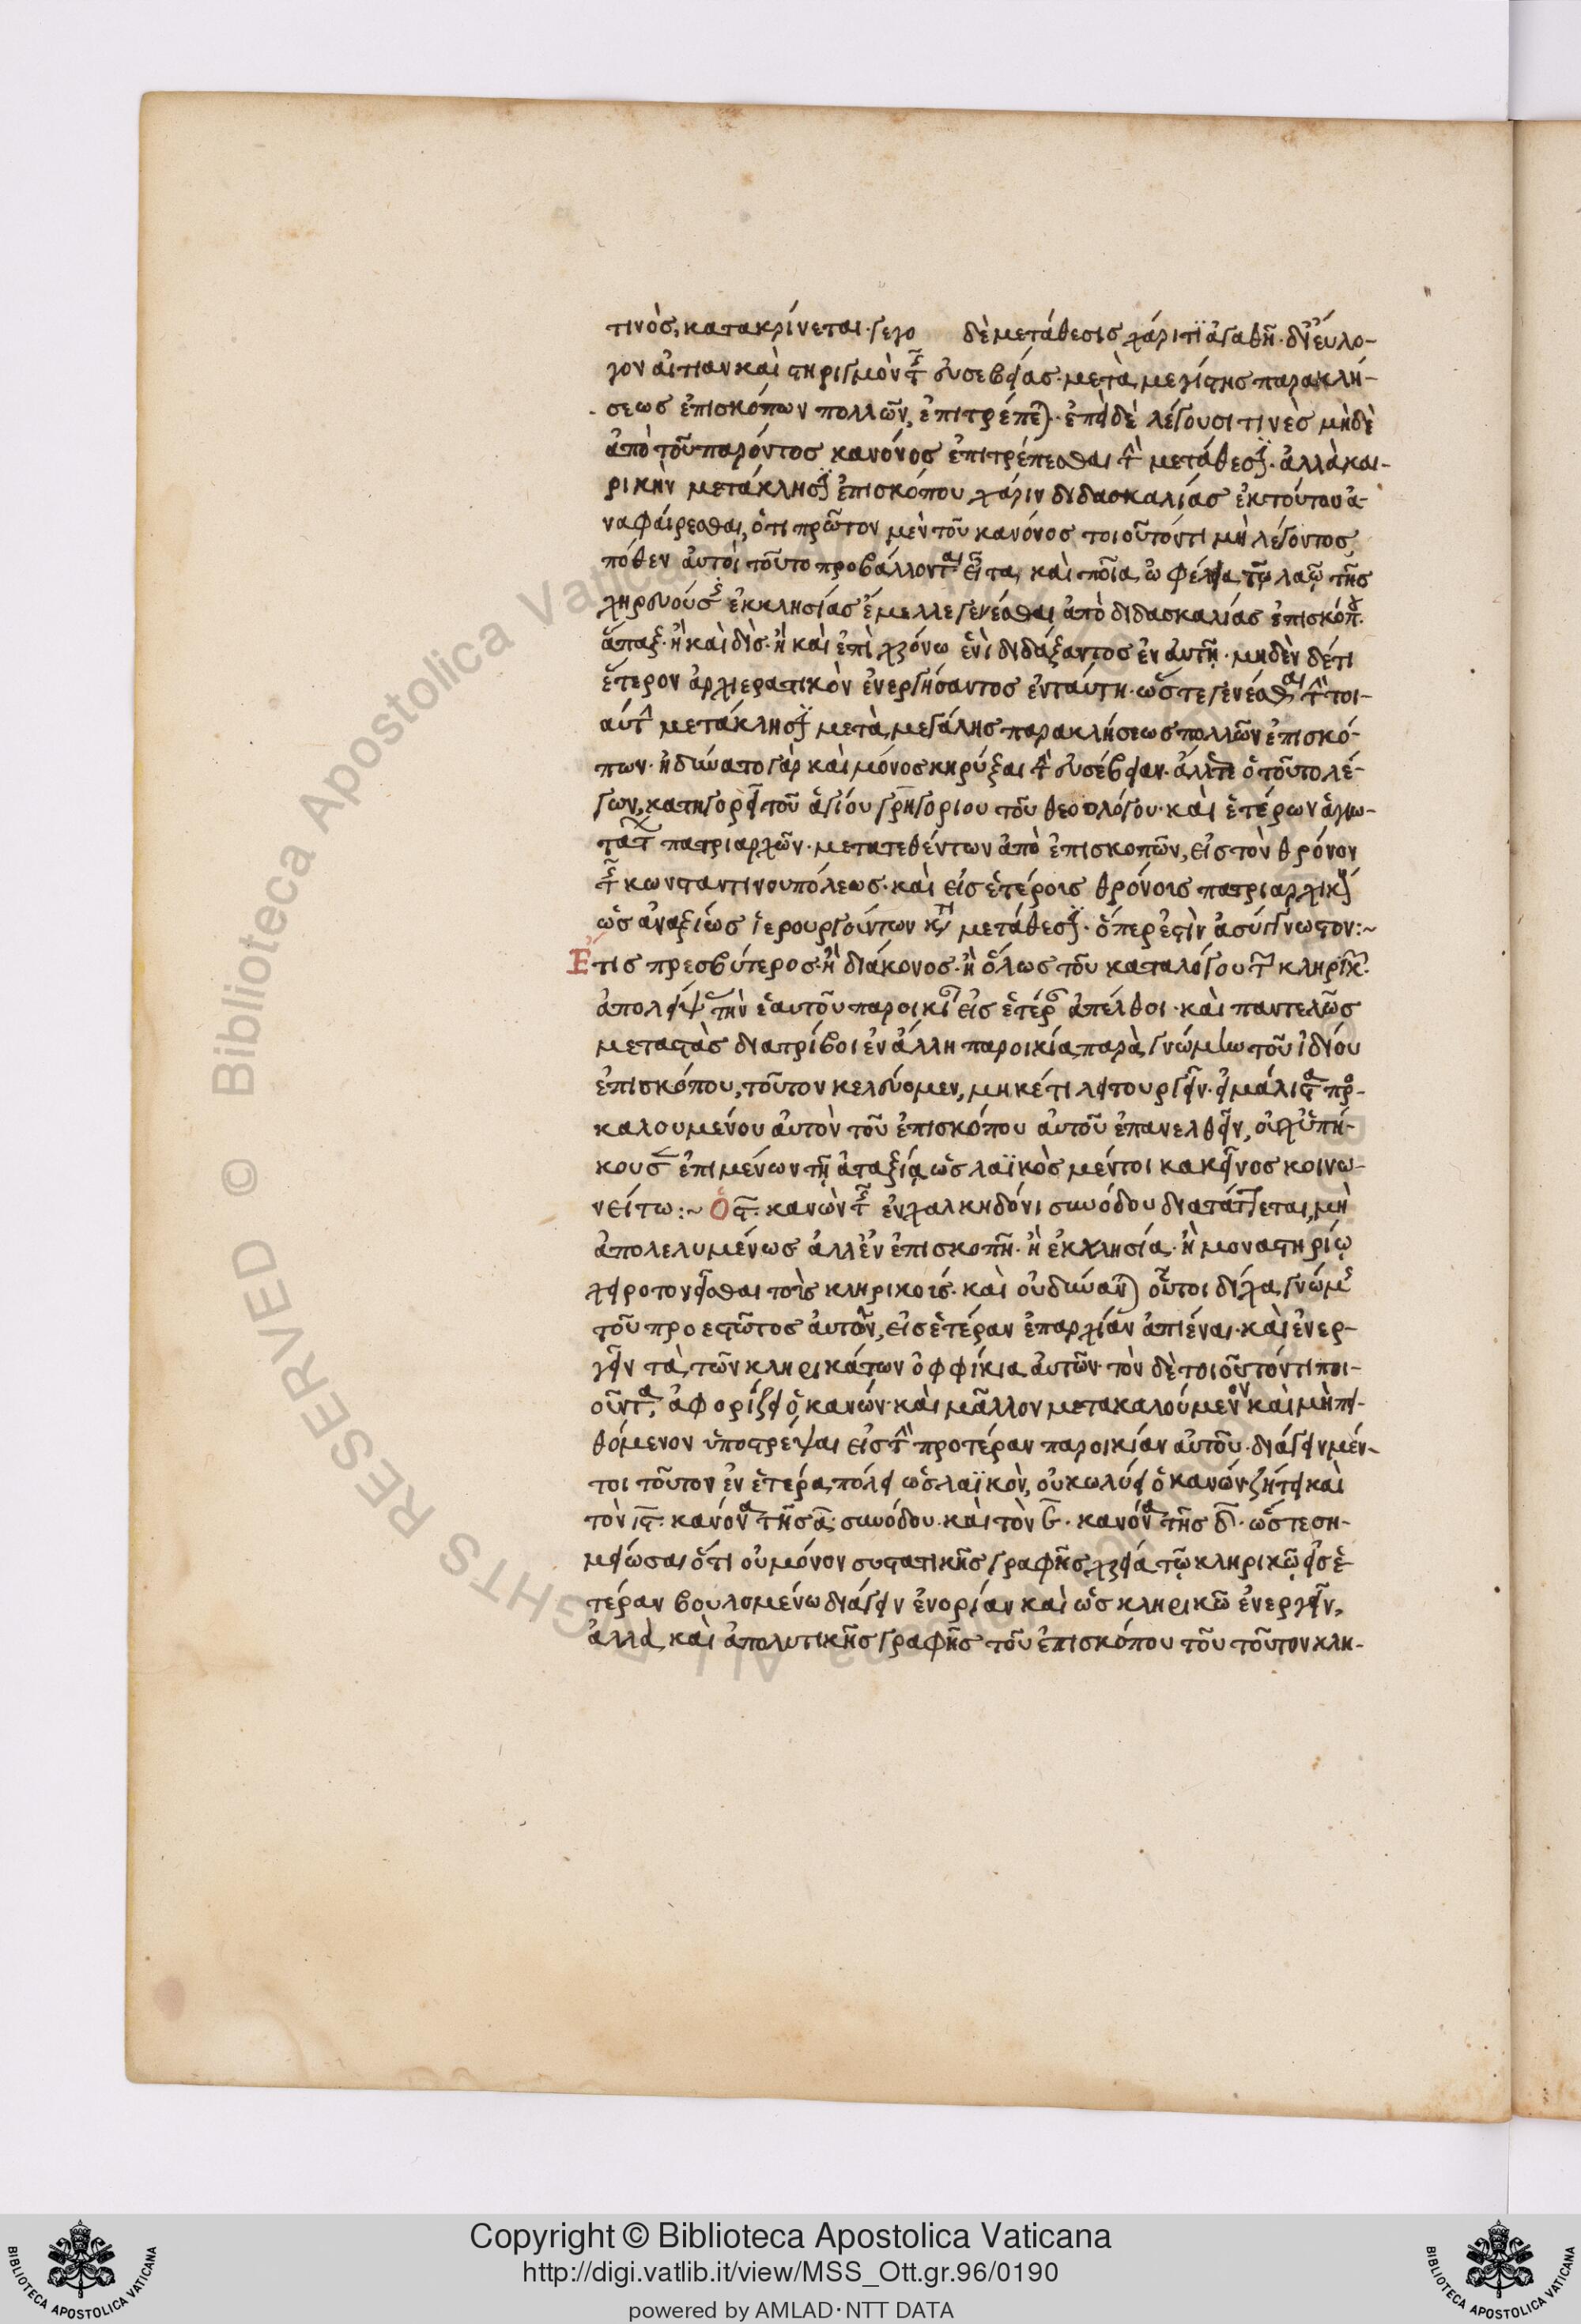 τινὸς, κατακρίνεται· γεγο δὲ μετάθεσις χάριτι ἀγαθῆ· δι' εὔλο-
γον αἰτίαν καὶ στηριγμὸν τῆς εὐσεβείας· μετὰ μεγίστης παρακλή-
σεως ἐπισκόπων πολλῶν, ἐπιτρέπεται· ἐπεὶ δὲ λέγουσι τινὲς μηδὲ
ἀπὸ τοῦ παρόντος κανόνος ἐπιτρέπεσθαι τὴν μετάθεσιν· ἀλλὰ και-
ρικὴν μετάκλησιν ἐπισκόπου χάριν διδασκαλίας ἐκ τούτου ἀ-
ναφαίρεσθαι, ὅτι πρῶτον μὲν τοῦ κανόνος τοιοῦτόν τι μὴ λέγοντος
πόθεν αὐτοὶ τοῦτο προβάλλονται εἶτα καὶ ποία ὠφέλεια τῶ λαῶ τῆς
χηρευούσης ἐκκλησίας ἔμελλε γενέσθαι ἀπὸ διδασκαλίας ἐπισκόπου
ἅπαξ· ἢ καὶ δὶς· ἢ καὶ ἐπὶ χρόνω ἑνὶ διδάξαντος ἐν αὐτῆ· μηδὲν δέ τι
ἕτερον ἀρχιερατικὸν ἐνεργήσαντος ἐν ταύτη· ὥστε γενέσθαι τὴν τοι-
αύτην μετάκλησιν μετὰ μεγάλης παρακλήσεως πολλῶν ἐπισκό-
πων· ἠδύνατο γὰρ καὶ μόνος κηρύξαι τὴν εὐσέβειαν· ἄλλως τε ὁ τοῦτο λέ-
γων, κατηγορεῖ τοῦ ἁγίου γρηγορίου τοῦ θεολόγου· καὶ ἑτέρων ἁγιω-
τάτων πατριαρχῶν· μετατεθέντων ἀπὸ ἐπισκοπῶν, εἰς τὸν θρόνον
τῆς κωνσταντινουπόλεως· καὶ εἰς ἑτέροις θρόνοις πατριαρχικοῖς
ὡς ἀναξίως ἱερουργούντων κατὰ μετάθεσιν· ὅπερ ἐστὶν ἀσύγγνωστον:~
Εἴ τις πρεσβύτερος· ἢ διάκονος· ἢ ὅλως τοῦ καταλόγου τῶν κληρικῶν
ἀπολείψας τὴν ἑαυτοῦ παροικίαν εἰς ἑτέραν ἀπέλθοι· καὶ παντελῶς
μεταστὰς διατρίβοι ἐν ἄλλη παροικία παρὰ γνώμην τοῦ ἰδίου
ἐπισκόπου, τοῦτον κελεύομεν, μηκέτι λειτουργεῖν· εἰ μάλιστα προ-
καλουμένου αὐτὸν τοῦ ἐπισκόπου αὐτοῦ ἐπανελθεῖν, οὐχ ὑπή-
κουσεν ἐπιμένων τῆ ἀταξία ὡς λαϊκὸς μέντοι κακεῖνος κοινω-
νείτω:~ Ὁ ς. κανὼν τῆς ἐν χαλκηδόνι συνόδου διατάττεται, μὴ
ἀπολελυμένως ἀλλ' ἐν ἐπισκοπῆ· ἢ ἐκκλησία· ἢ μοναστηρίω
χειροτονεῖσθαι τοὶς κληρικοὶς· καὶ οὐ δύνανται οὗτοι δίχα γνώμης
τοῦ προεστῶτος αὐτῶν, εἰς ἑτέραν ἐπαρχίαν ἀπιέναι· καὶ ἐνερ-
γεῖν τὰ τῶν κληρικάτων ὀφφίκια αὐτῶν· τὸν δὲ τοιοῦτόν τι ποι-
οῦντα, ἀφορίζει ὁ κανών· καὶ μᾶλλον μετακαλούμενον καὶ μὴ πει-
θόμενον ὑποστρέψαι εἰς τὴν προτέραν παροικίαν αὐτοῦ· διάγειν μέν-
τοι τοῦτον ἐν ἑτέρα πόλει ὡς λαϊκὸν, οὐ κωλύει ὁ κανών· ζήτει καὶ
τὸν ις. κανόνα τῆς α. συνόδου· καὶ τὸν ς. κανόνα τῆς δ. ὥστε ση-
μείωσαι ὅτι οὐ μόνον συστατικῆς γραφῆς χρεία τῶ κληρικῶ εἰς ἑ-
τέραν βουλομένω διάγειν ἐνορίαν καὶ ὡς κληρικῶ ἐνεργεῖν,
ἀλλὰ καὶ ἀπολυτικῆς γραφῆς τοῦ ἐπισκόπου τοῦ τοῦτον κλη-
Copyright © Biblioteca Apostolica Vaticana
http://digi.vatlib.it/view/MSS_Ott.gr.96/0190
powered by AMLAD·NTT DATA
BIBLIOTECA APOSTOLICA VATICANA
BIBLIOTECA APOSTOLICA VATICANA